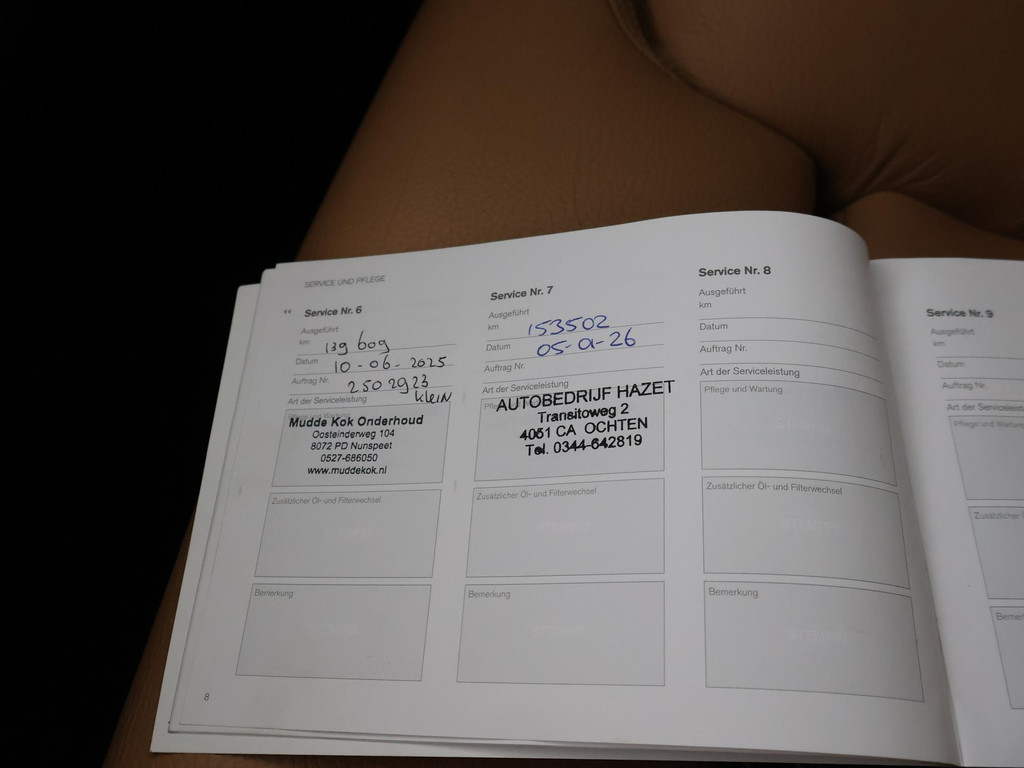 SERVICE UND PFLEGE
Service Nr. 6
Ausgeführt
km 139 609
Datum 10-06-2025
Auftrag Nr. 2502923
Art der Serviceleistung klein
Pflege und Wartung
Mudde Kok Onderhoud
Oosteinderweg 104
8072 PD Nunspeet
0527-686050
www.muddekok.nl
Zusätzlicher Öl- und Filterwechsel
Bemerkung
8
Service Nr. 7
Ausgeführt
km 153502
Datum 05-01-26
Auftrag Nr.
Art der Serviceleistung
AUTOBEDRIJF HAZET
Transitoweg 2
4051 CA OCHTEN
Tel. 0344-642819
Zusätzlicher Öl- und Filterwechsel
Bemerkung
Service Nr. 8
Ausgeführt
km
Datum
Auftrag Nr.
Art der Serviceleistung
Pflege und Wartung
Zusätzlicher Öl- und Filterwechsel
Bemerkung
Service Nr. 9
Ausgeführt
km
Datum
Auftrag Nr.
Art der Serviceleist
Pflege und Wartung
Zusätzlicher
Beme